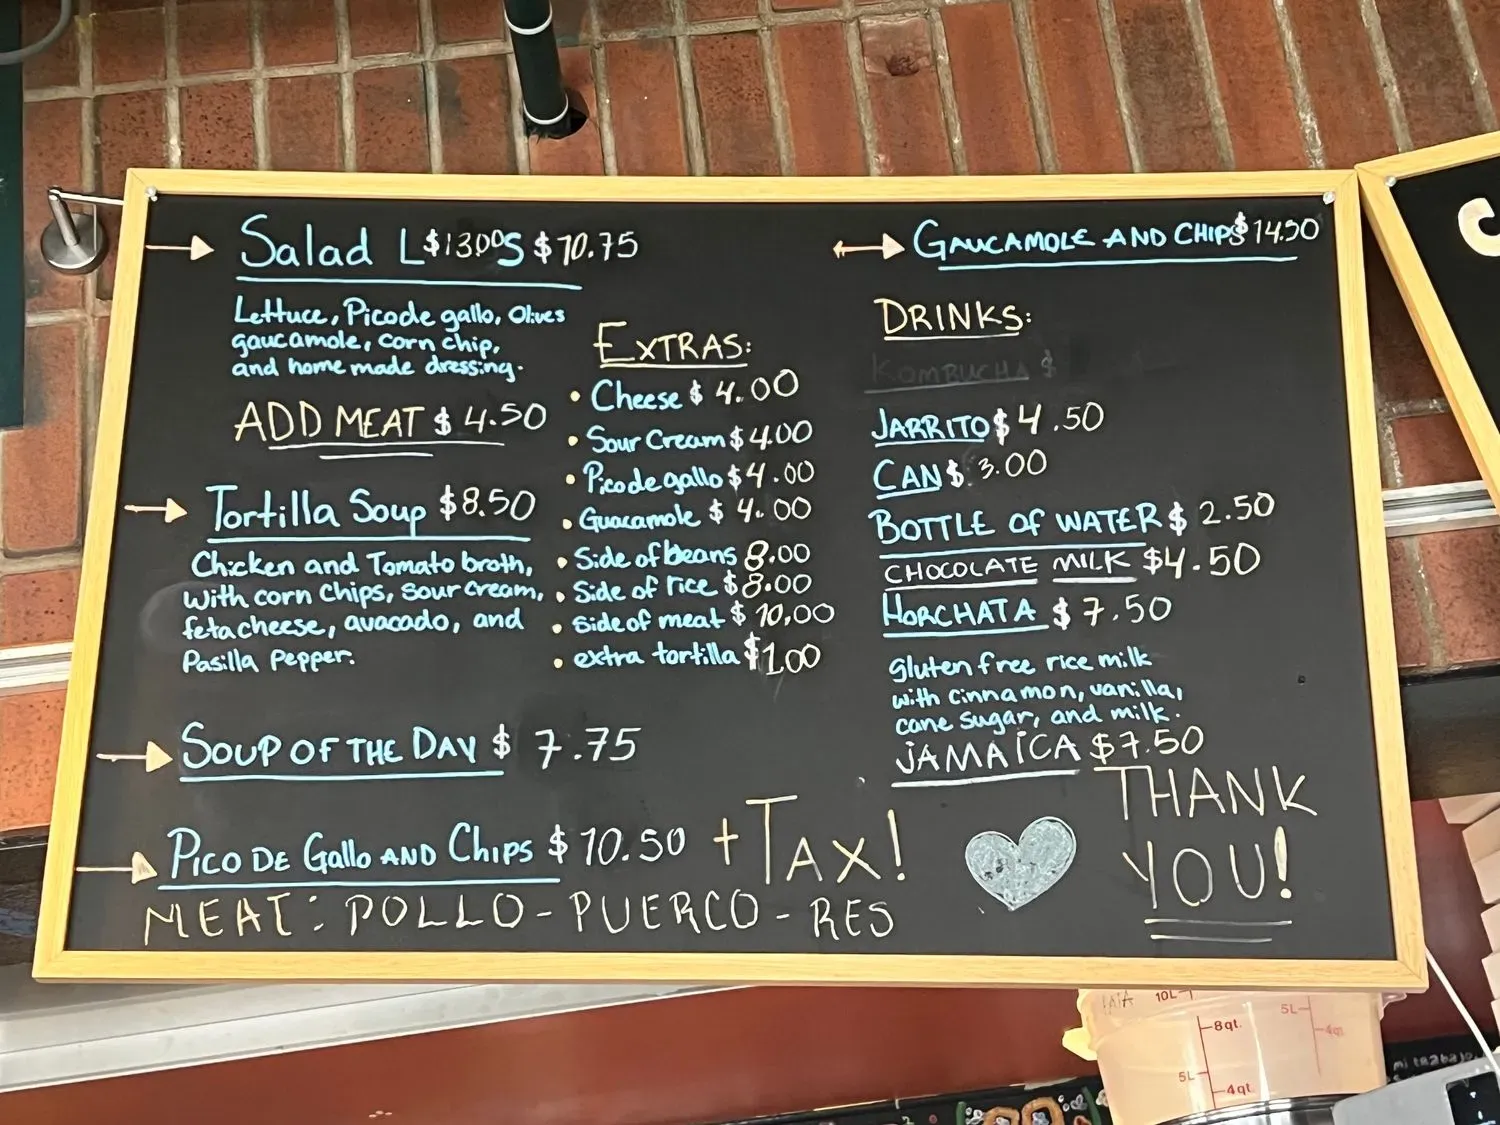 Salad L $13.00 S $10.75
Lettuce, Pico de gallo, Olives
gaucamole, corn chip,
and home made dressing.
ADD MEAT $4.50
Tortilla Soup $8.50
Chicken and Tomato broth,
with corn chips, sour cream,
feta cheese, avacado, and
Pasilla Pepper.
SOUP OF THE DAY $ 7.75
PICO DE Gallo AND Chips $10.50
+ TAX!
MEAT: POLLO - PUERCO - RES
EXTRAS:
• Cheese $ 4.00
• Sour Cream $4.00
• Pico de gallo $4.00
• Guacamole $ 4.00
• Side of beans 8.00
• Side of rice $8.00
• Side of meat $10.00
• extra tortilla $1.00
GAUCAMOLE AND CHIPS $14.50
DRINKS:
KOMBUCHA $
JARRITO $4.50
CAN $ 3.00
BOTTLE OF WATER $ 2.50
CHOCOLATE MILK $4.50
HORCHATA $7.50
gluten free rice milk
with cinnamon, vanilla,
cane sugar, and milk.
JAMAICA $7.50
THANK
YOU!
10L
8qt.
5L
4qt
5L
4qt